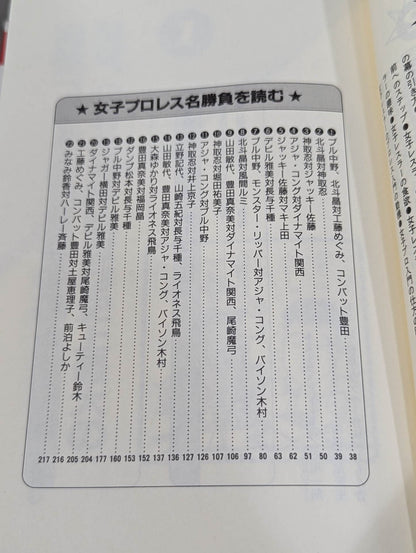 ★ 女子プロレス名勝負を読む ★
❶ブル中野、北斗晶対工藤めぐみ、コンバット豊田 38
❷北斗晶対神取忍 39
❸神取忍対ジャッキー佐藤 50
❹アジャ・コング対ダイナマイト関西 51
❺ジャッキー佐藤対マキ上田 62
❻デビル雅美対長与千種 63
❼ブル中野、モンスター・リッパー対アジャ・コング、バイソン木村 80
❽北斗晶対風間ルミ 97
❾山田敏代、豊田真奈美対ダイナマイト関西、尾崎魔弓 106
❿神取忍対堀田祐美子 107
⓫アジャ・コング対ブル中野 126
⓬神取忍対井上京子 127
⓭立野記代、山崎五紀対長与千種、ライオネス飛鳥 136
⓮山田敏代、豊田真奈美対アジャ・コング、バイソン木村 137
⓯大森ゆかり対ライオネス飛鳥 152
⓰豊田真奈美対福岡晶 153
⓱ダンプ松本対長与千種 160
⓲ブル中野対デビル雅美 177
⓳ジャガー横田対デビル雅美 204
⓴ダイナマイト関西、デビル雅美対尾崎魔弓、キューティー鈴木 205
㉑工藤めぐみ、コンバット豊田対土屋恵理子、前泊よしか 216
㉒みなみ鈴香対ハーレー斉藤 217